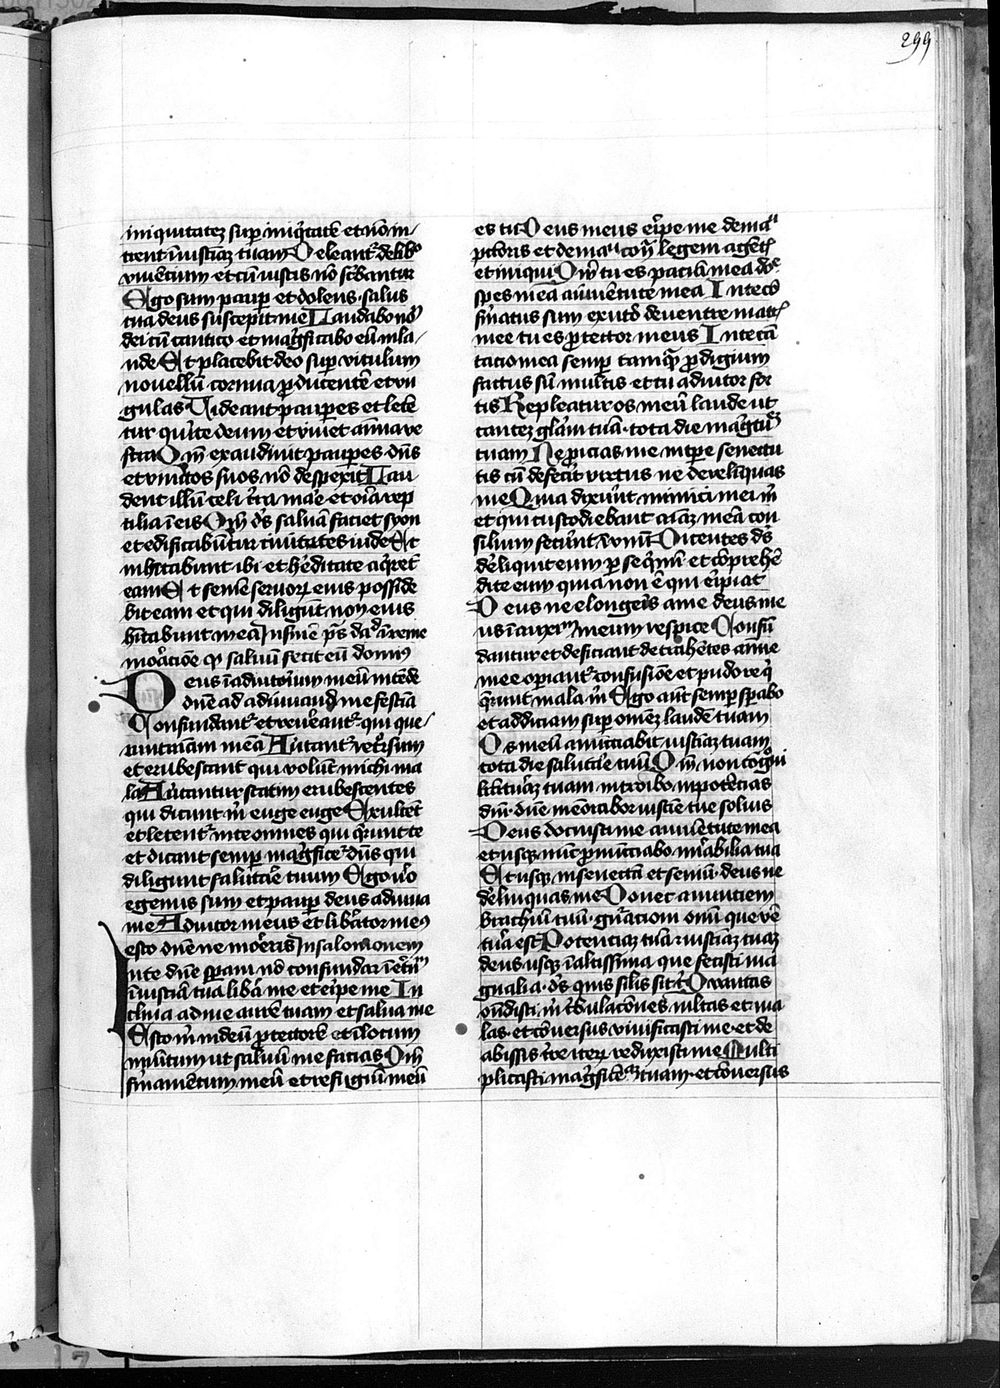 299
iniquitatez sup iniq̉tatē et nō in-
trent ī iusticiaz tuam Deleant᷑ de libº
viuētium et cū iustis nō sc̉bantur
Ego sum paup et dolens salus
tua deus suscepit me Laudabo nō
dei cū cantico et mag̉ficabo eū in la-
ude Et placebit deo sup vitulum
nouellū cornua ꝓducentē et vn
gulas Uideant paupes et lete
tur querite deum et viuet anima ve
stra Qm̄ exaudiuit paupes dn̄s
et vinctos suos nō despexit Lau
dent illū celi t̉ra mare et oīa rep
tilia ī eis Qm̄ ds̄ saluā faciet syon
et edificabūtur ciuitates iude Et
inhitabunt ibi et h̉editate acq̉rēt
eam Et semē seruoꝝ eius posside
bit eam et qui diligūt nomen eius
hītabunt in ea In finē ps̄ dd̄ ī reme
moratiōe ꝙ saluū fecit eū domīꝰ
Deus ī adiutorium meū intēde
dn̄e ad adiuuand̄ me festīa
Confundant᷑ et reủeant᷑ qui que-
runt aīam meā Aủtant᷑ ret̉sum
et erubescant qui volūt michi ma
la Aủtantur statim erubescentes
qui dicunt m̄ euge euge Exultēt
et letent᷑ in te omnes qui q̉runt te
et dicant semp mag̉ficet᷑ dn̄s qui
diligunt salutare tuum Ego v̉o
egenus sum et paup deus adiuua
me Adiutor meus et lib̉ator meꝰ
esto dn̄e ne moreris In salomonem
In te dn̄e sp̉aui nō confundar ī et̉nū
ī iusticia tua lib̉a me et eripe me In
clina ad me aurē tuam et salua me
Esto m̄ in deū ꝓtectorē et ī locum
munitum ut saluū me facias Qm̄
firmamētum meū et refugiū meū
es tu Deus meus eripe me de manu
pctoris et de manu cont̉ legem agētis
et iniqui Qm̄ tu es paciētia mea dn̄e
spes mea a iuuentute mea In te cō
firmatus sum ex utero de ventre matris
mee tu es ꝓtector meus In te cā
tacio mea semp tamq̄ ꝓdigium
factus sū multis et tu adiutor for
tis Repleatur os meū laude ut
cantez gl̉am tuā tota die mag̉tud̉
tuam Ne ꝓicias me in tpe senectu
tis cū defecerit virtus ne derelinquas
me Quia dixerūt inimici mei m̄
et qui custodiebant aīaz meā con
silium fecerūt ī vnum Dicentes ds̄
dereliquit eum ꝑseq̉mī et cōprehē
dite eum quia non ē qui eripiat
Deus ne elongeris a me deus me
us ī auxiliū meum respice Confū
dantur et deficiant detrahētes anime
mee operiant᷑ confusiōe et pudore q̉
q̉runt mala m̄ Ego aūt semp sp̉abo
et addiciam sup omēz laudē tuam
Os meū anūciabit iusticiaz tuam
tota die salutare tuū Qm̄ non cogn̄oui
litteraturaz tuam introibo in potencias
dn̄i dn̄e memorabor iusticie tue solius
Deus docuisti me a iuuētute mea
et usqꝫ nūc ꝓnūciabo mirabilia tua
Et usqꝫ in senectā et seniū deus ne
derelinquas me Donec anuntiem
brachiū tuū gn̄acioni omī que vē
tura est Potenciaz tuā et iusticiaz tuaz
deus usqꝫ ī altissima que fecisti ma
gnalia ds̄ quis similis sit t̄ Quantas
ostendisti m̄ tribulacōnes multas et ma
las et cōuersus viuificasti me et de
abissis terre iterū reduxisti me Multi
plicasti mag̉ficēciā tuam et cōuersus